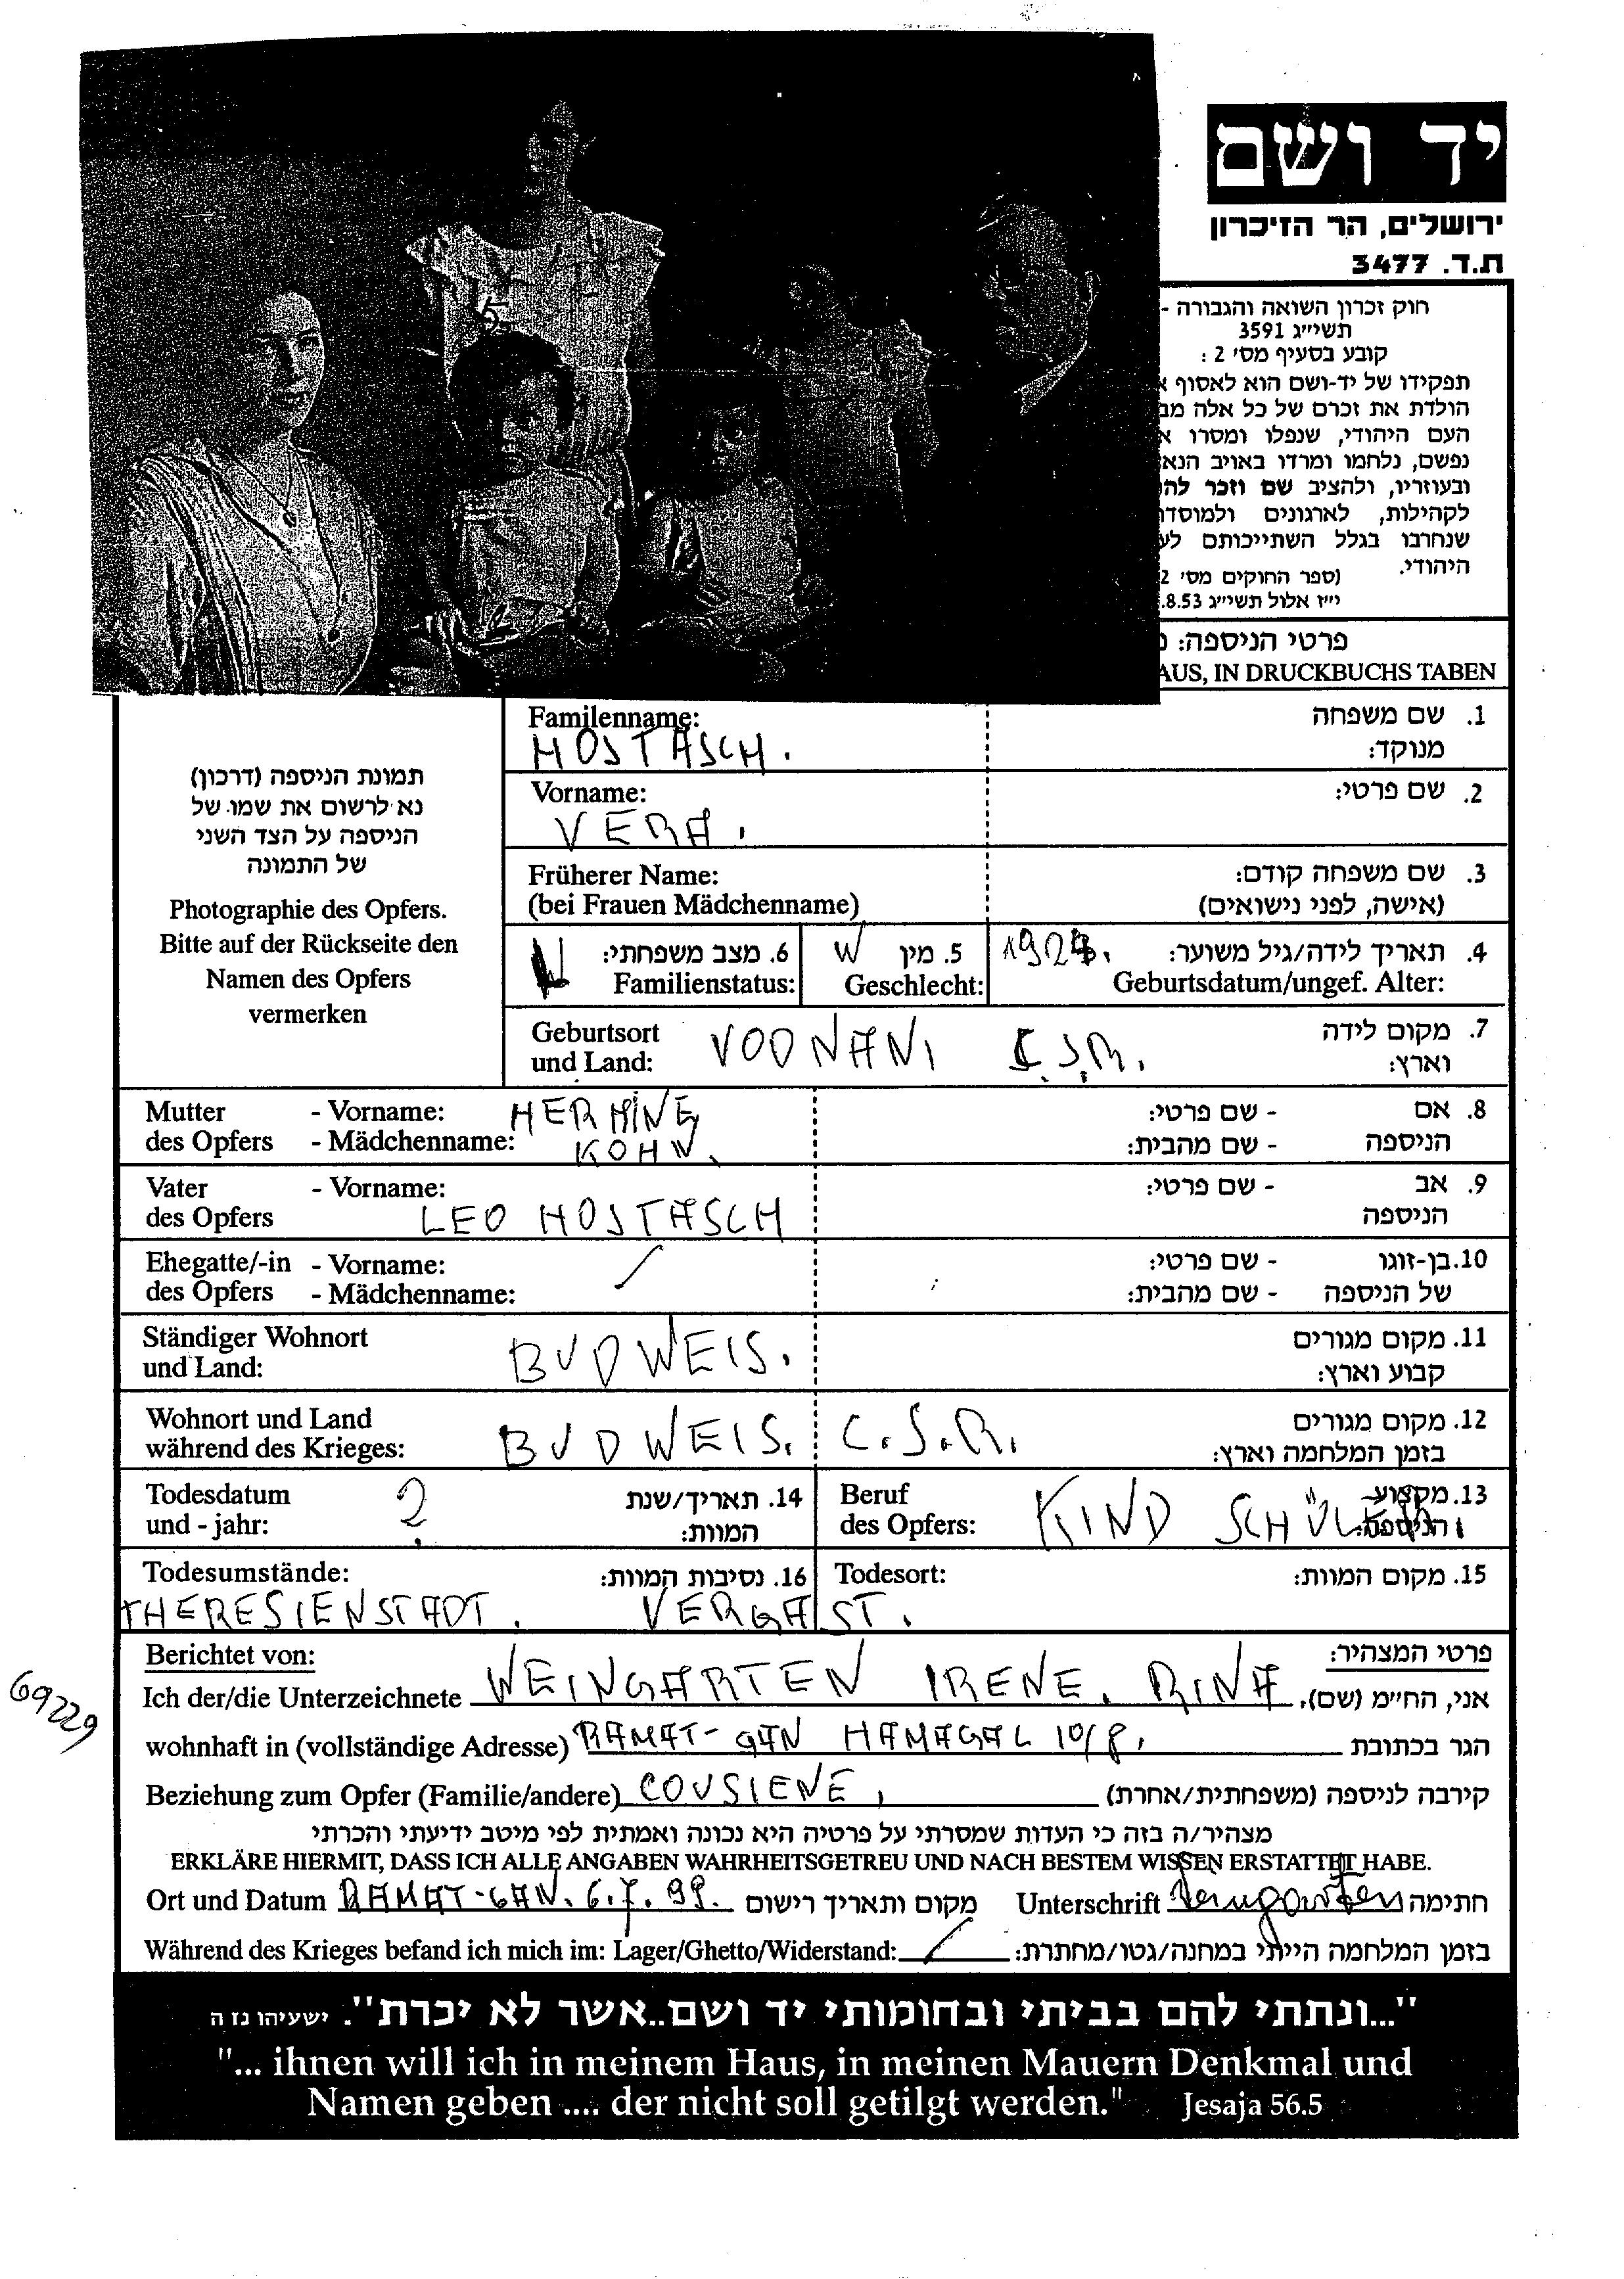 יד ושם
ירושלים, הר הזיכרון
ת.ד. 3477
חוק זכרון השואה והגבורה -
תשי״ג 3591
קובע בסעיף מס׳ 2 :
תפקידו של יד-ושם הוא לאסוף א
הולדת את זכרם של כל אלה מב
העם היהודי, שנפלו ומסרו א
נפשם, נלחמו ומרדו באויב הנא
ובעוזריו, ולהציב שם וזכר לה
לקהילות, לארגונים ולמוסדו
שנחרבו בגלל השתייכותם לע
היהודי.
(ספר החוקים מס׳ 2
י״ז אלול תשי״ג 8.53.
פרטי הניספה:
AUS, IN DRUCKBUCHS TABEN
תמונת הניספה (דרכון)
נא לרשום את שמו של
הניספה על הצד השני
של התמונה
Photographie des Opfers.
Bitte auf der Rückseite den
Namen des Opfers
vermerken
Familenname: 1. שם משפחה
HOSTASCH. מנוקד:
Vorname: 2. שם פרטי:
VERA.
Früherer Name: 3. שם משפחה קודם:
(bei Frauen Mädchenname) (אישה, לפני נישואים)
W 6. מצב משפחתי: W 5. מין 4. תאריך לידה/גיל משוער:
Familienstatus: Geschlecht: Geburtsdatum/ungef. Alter:
Geburtsort VODNANI Č.S.R. 7. מקום לידה
und Land: וארץ:
Mutter - Vorname: HERMINE 8. אם - שם פרטי:
des Opfers - Mädchenname: KOHN. הניספה - שם מהבית:
Vater - Vorname: 9. אב - שם פרטי:
des Opfers LEO HOSTASCH הניספה
Ehegatte/-in - Vorname: / 10. בן-זוגו - שם פרטי:
des Opfers - Mädchenname: של הניספה - שם מהבית:
Ständiger Wohnort 11. מקום מגורים
und Land: BUDWEIS. קבוע וארץ:
Wohnort und Land 12. מקום מגורים
während des Krieges: BUDWEIS. C.S.R. בזמן המלחמה וארץ:
Todesdatum ? 14. תאריך/שנת Beruf KIND SCHÜLER. 13. מקצוע
und - jahr: המוות: des Opfers: הניספה:
Todesumstände: 16. נסיבות המוות: Todesort: 15. מקום המוות:
THERESIENSTADT. VERGAST.
Berichtet von: פרטי המצהיר:
Ich der/die Unterzeichnete WEINGARTEN IRENE. RINA אני, החי״מ (שם),
69229
wohnhaft in (vollständige Adresse) RAMAT-GAN HAMAGAL 10/8. הגר בכתובת
Beziehung zum Opfer (Familie/andere) COUSIENE, קירבה לניספה (משפחתית/אחרת)
מצהיר/ה בזה כי העדות שמסרתי על פרטיה היא נכונה ואמתית לפי מיטב ידיעתי והכרתי
ERKLÄRE HIERMIT, DASS ICH ALLE ANGABEN WAHRHEITSGETREU UND NACH BESTEM WISSEN ERSTATTET HABE.
Ort und Datum RAMAT-GAN. 6.7.99. מקום ותאריך רישום Unterschrift Weingarten חתימה
Während des Krieges befand ich mich im: Lager/Ghetto/Widerstand: / בזמן המלחמה הייתי במחנה/גטו/מחתרת:
"...ונתתי להם בביתי ובחומותי יד ושם..אשר לא יכרת". ישעיהו נז ה
"... ihnen will ich in meinem Haus, in meinen Mauern Denkmal und
Namen geben .... der nicht soll getilgt werden." Jesaja 56.5